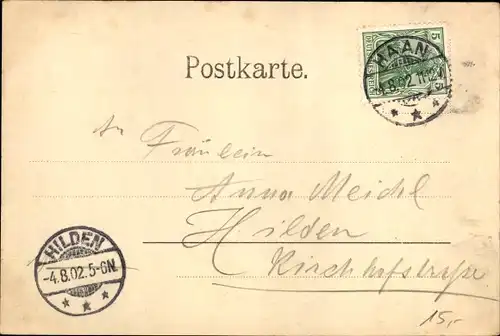 Postkarte.
5
HAAN
4.8.02 11-12V
An
Fräulein
Anna Meichl
Hilden
Kirchhofstraße
HILDEN
-4.8.02.5-6N.
15,-